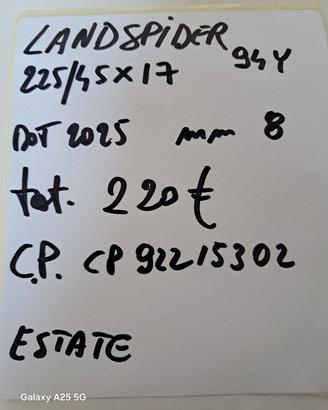 LANDSPIDER 94Y
225/45X17
DOT 2025 mm 8
tot. 220€
C.P. CP 92215302
ESTATE
Galaxy A25 5G